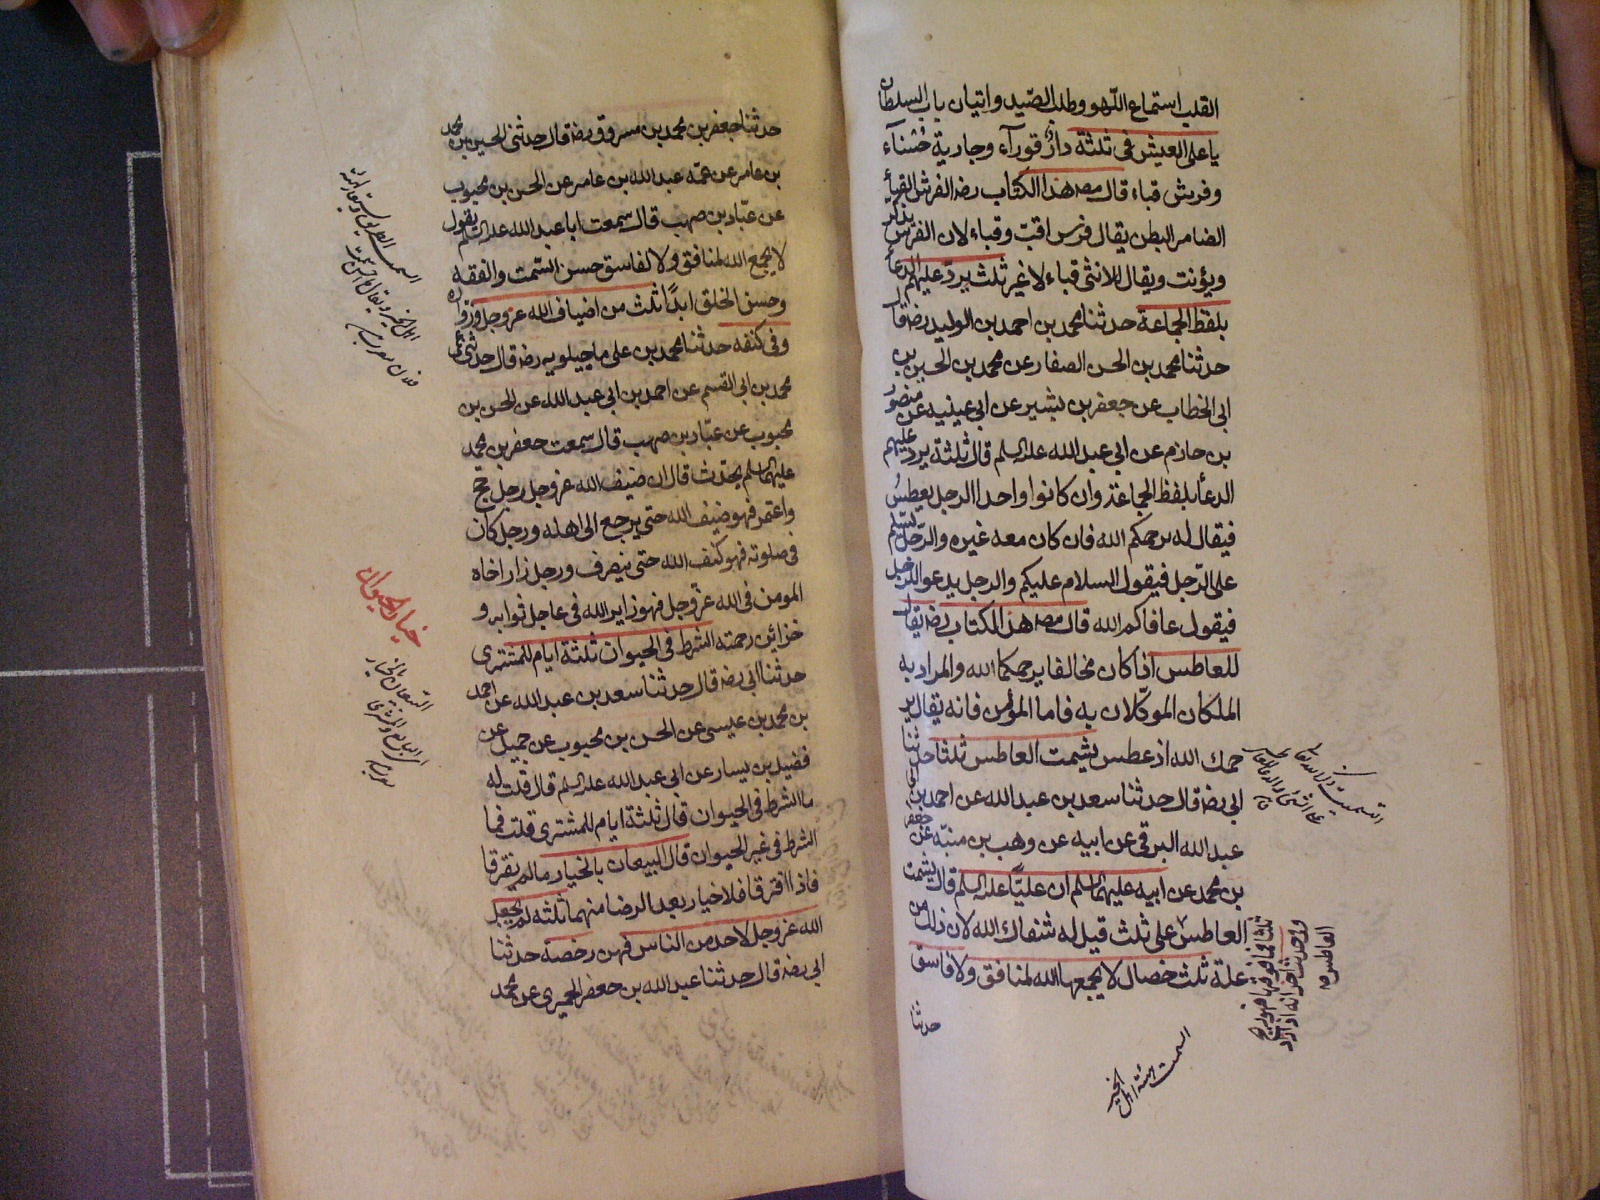 القلب استماع اللهو وطلب الصيد واتيان باب السلطان
يا على العيش فى ثلثة دار قورآء وجارية حسنآء
وفرس قباء قال مصه هذا الكتاب رضه الفرس القباء
الضامر البطن يقال فرس اقب وقباء لان الفرس يذكر
ويؤنث ويقال للانثى قباء لا غير ثلث يرد عليهم الدعأ
بلفظ الجماعة حدثنا محمد بن احمد بن الوليد رضه قال
حدثنا محمد بن الحسن الصفار عن محمد بن الحسين بن
ابى الخطاب عن جعفر بن بشير عن ابى عيينه عن منصور
بن حازم عن ابى عبد الله علد السلم قال ثلثة يرد عليهم
الدعأ بلفظ الجماعة وان كانوا واحدا الرجل يعطس
فيقال له يرحمكم الله فان كان معه غيره والرجل يسلم
على الرجل فيقول السلام عليكم والرجل يدعو للرجل
فيقول عافاكم الله قال مصه هذا الكتاب رضه يقال
للعاطس اذا كان مخالفا يرحمكما الله والمراد به
الملكان الموكلان به فاما المؤمن فانه يقال ير
حمك الله اذ عطس يشمت العاطس ثلثا حدثنا
ابى رضه قال حدثنا سعد بن عبد الله عن احمد بن ابى
عبد الله البرقى عن ابيه عن وهب بن منبه عن جعفر
بن محمد عن ابيه عليهما السلم ان عليا علد السلم قال يشمت
العاطس على ثلث قيل له شفاك الله لان ذلك من
علة ثلث خصال لا يجمعها الله لمنافق ولا فاسق
حدثنا
السمت هيئة اهل الخير
ثلثا فما فوقها فهو ريح
وفى حديث اخر انه اذا زاد
العاطس
حدثنا جعفر بن محمد بن مسروق رضه قال حدثنى الحسين بن محمد
بن عامر عن عمه عبد الله بن عامر عن الحسن بن محبوب
عن عباد بن صهيب قال سمعت ابا عبد الله علد السلم يقول
لا يجمع الله لمنافق ولا لفاسق حسن السمت والفقه
وحسن الخلق ابدا ثلث من اضياف الله عز وجل وزواره
وفى كنفه حدثنا محمد بن على ماجيلويه رضه قال حدثنى عمى
محمد بن ابى القسم عن احمد بن ابى عبد الله عن الحسن بن
محبوب عن عباد بن صهيب قال سمعت جعفر بن محمد
عليهما السلم يحدث قال ان ضيف الله عز وجل رجل حج
واعتمر فهو ضيف الله حتى يرجع الى اهله ورجل كان
فى صلوته فهو كنف الله حتى ينصرف ورجل زار اخاه
المومن فى الله عز وجل فهو زاير الله فى عاجل ثوابه و
خزائن رحمته الشرط فى الحيوان ثلثة ايام للمشترى
حدثنا ابى رضه قال حدثنا سعد بن عبد الله عن احمد
بن محمد بن عيسى عن الحسن بن محبوب عن جميل عن
فضيل بن يسار عن ابى عبد الله علد السلم قال قلت له
ما الشرط فى الحيوان قال ثلثة ايام للمشترى قلت فما
الشرط فى غير الحيوان قال البيعان بالخيار ما لم يفترقا
فاذا افترقا فلا خيار بعد الرضا منهما ثلثه لم يجعل
الله عز وجل لاحد من الناس فيهن رخصة حدثنا
ابى رضه قال حدثنا عبد الله بن جعفر الحميرى عن محمد
خيار الحيوان
البيعان بالخيار